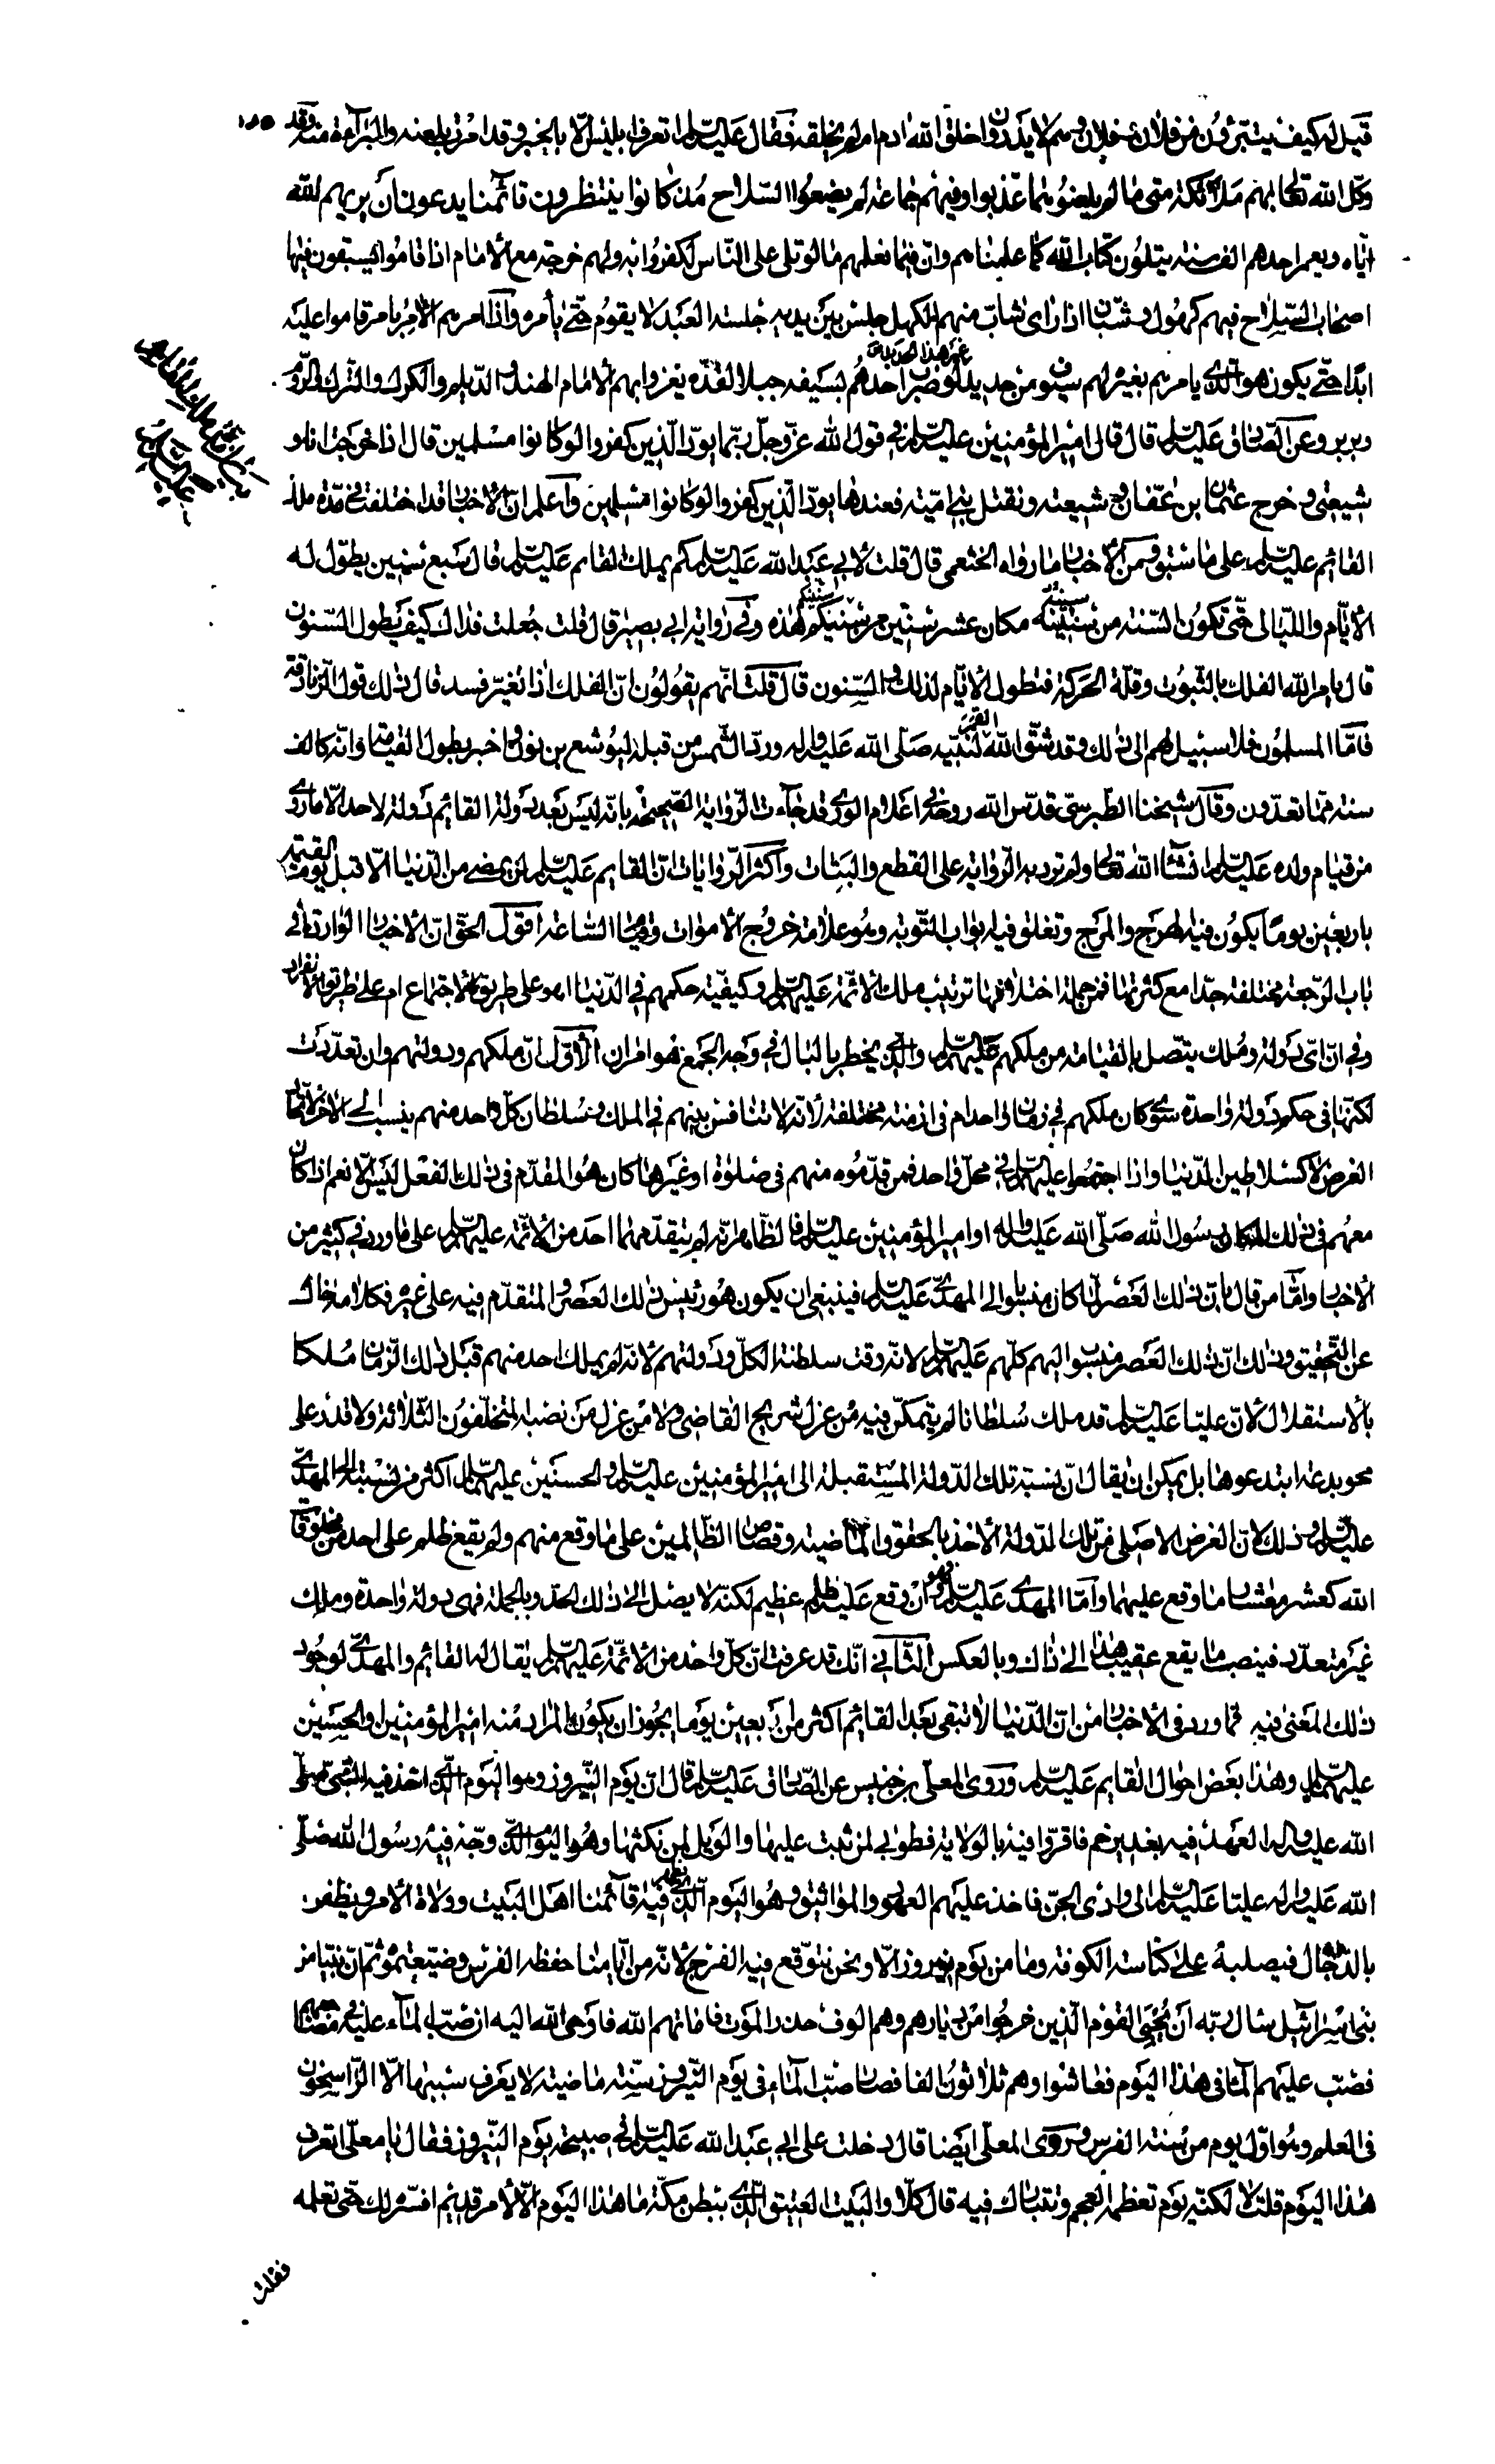 قيل له كيف يتبرؤن من فلان وفلان وهم لا يدرون اخلق الله ادم ام لم يخلقه فقال عليه السلام اتعرف ابليس الا بالخبر وقد امرت بلعنه والبرآءة منه وقد
وكل الله تعالى بهم ملائكة متى ما لم يلعنوهما عذبوا وفيهم جماعة لم يضعوا السلاح مذ كانوا ينتظرون قائمنا يدعون ان يريهم الله
اياه ويعمر احدهم الف سنة يتلون كتاب الله كما علمناهم وان فيما نعلمهم ما لو تلى على الناس لكفروا به ولهم خرجة مع الامام اذا قاموا يسبقون فيها
اصحاب السلاح فيهم كهول وشبان اذا راى شاب منهم الكهل جلس بين يديه جلسة العبد لا يقوم حتى يأمره واذا امرهم الامام بامر قاموا عليه
ابدا حتى يكون هو الذي يامرهم بغيره لهم سيوف من حديد غير هذا الحديد لو ضرب احدهم بسيفه جبلا لقده يغزو بهم الامام الهند والديلم والكرك والترك والروم
وبربر وعن الصادق عليه السلام قال قال امير المؤمنين عليه السلام في قول الله عز وجل ربما يود الذين كفروا لو كانوا مسلمين قال اذا خرجت انا و
شيعتي وخرج عثمان بن عفان وشيعته ونقتل بني امية فعندها يود الذين كفروا لو كانوا مسلمين واعلم ان الاخبار قد اختلفت في مدة ملك
القائم عليه السلام على ما سبق فمن الاخبار ما رواه الخثعمي قال قلت لابي عبد الله عليه السلام كم يملك القائم عليه السلام قال سبع سنين يطول له
الايام والليالي حتى تكون السنة من سنينه مكان عشر سنين من سنينكم هذه وفي رواية ابي بصير قال قلت جعلت فداك كيف يطول السنون
قال يامر الله الفلك بالثبوت وقلة الحركة فتطول الايام لذلك والسنون قال قلت انهم يقولون ان الفلك اذا تغير فسد قال ذلك قول الزنادقة
فاما المسلمون فلا سبيل لهم الى ذلك وقد شق الله القمر لنبيه صلى الله عليه واله ورد الشمس من قبله ليوشع بن نون واخبر بطول القيامة وانه كالف
سنة مما تعدون وقال شيخنا الطبرسي قدس الله روحه في اعلام الورى قد جاءت الرواية الصحيحة بانه ليس بعد دولة القائم دولة لاحد الا ما روي
من قيام ولده عليه السلام ان شاء الله تعالى ولم ترد به الرواية على القطع والبتات واكثر الروايات ان القايم عليه السلام لن يمضي من الدنيا الا قبل يوم القيمة
باربعين يوما يكون فيه الهرج والمرج وتغلق فيه ابواب التوبة وهو علامة خروج الاموات وقيام الساعة اقول الحق ان الاخبار الواردة في
باب الرجعة مختلفة جدا مع كثرتها فمن جملة اختلافها ترتيب ملك الائمة عليهم السلام وكيفية حكمهم في الدنيا اهو على طريق الاجتماع ام على طريق الانفراد
وفي ان اي دولة وملك يتصل بالقيامة من ملكهم عليهم السلام والذي يخطر بالبال في وجه الجمع هو امران الاول ان ملكهم ودولتهم وان تعددت
لكنها في حكم دولة واحدة سواء كان ملكهم في زمان واحد ام في ازمنة مختلفة لانه لا تنافس بينهم في الملك وسلطان كل واحد منهم ينسب الى الاخر لاتحاد
الغرض لا كسلاطين الدنيا واذا اجتمعوا عليهم السلام في محل واحد فمن قدموه منهم في صلوة او غيرها كان هو المقدم في ذلك الفعل ليس الا نعم اذا كان
معهم في ذلك المكان رسول الله صلى الله عليه واله او امير المؤمنين عليه السلام فالظاهر انه لم يتقدمهما احد من الائمة عليهم السلام على ما ورد في كثير من
الاخبار واما من قال بان ذلك العصر لما كان منسوبا الى المهدي عليه السلام فينبغي ان يكون هو رئيس ذلك العصر والمتقدم فيه على غيره فكلامه خال
عن التحقيق وذلك ان ذلك العصر منسوب اليهم كلهم عليهم السلام لانه وقت سلطنة الكل ودولتهم لانه لم يملك احد منهم قبل ذلك الزمان ملكا
بالاستقلال لان عليا عليه السلام قد ملك سلطانا لم يتمكن فيه من عزل شريح القاضي ولا من عزل من نصبه المتخلفون الثلاثة ولا قدر على
محو بدعة ابتدعوها بل يمكن ان يقال ان نسبة تلك الدولة المستقبلة الى امير المؤمنين عليه السلام والحسنين عليهما السلام اكثر من نسبته الى المهدي
عليه السلام وذلك لان الغرض الاصلي من تلك الدولة الاخذ بالحقوق الماضية وقصاص الظالمين على ما وقع منهم ولم يقع ظلم على احد من مخلوقات
الله كعشر معشار ما وقع عليهما واما المهدي عليه السلام فهو وان وقع عليه ظلم عظيم لكنه لا يصل الى ذلك الحد وبالجملة فهي دولة واحدة وملك
غير متعدد فينصب ما يقع عقيب هذا الى ذاك وبالعكس الثاني انك قد عرفت ان كل واحد من الائمة عليهم السلام يقال له القائم والمهدي لوجود
ذلك المعنى فيه فما ورد في الاخبار من ان الدنيا لا تبقى بعد القائم اكثر من اربعين يوما يجوز ان يكون المراد منه امير المؤمنين او الحسين
عليهما السلام وهذا بعض احوال القايم عليه السلام وروى المعلى بن خنيس عن الصادق عليه السلام قال ان يوم النيروز وهو اليوم الذي اخذ فيه النبي صلى
الله عليه واله العهد فيه بغدير خم فاقروا فيه بالولاية فطوبى لمن ثبت عليها والويل لمن نكثها وهو اليوم الذي وجه فيه رسول الله صلى
الله عليه واله عليا عليه السلام الى وادي الجن فاخذ عليهم العهود والمواثيق وهو اليوم الذي يظهر فيه قائمنا اهل البيت وولاة الامر ويظفره
بالدجال فيصلبه على كناسة الكوفة وما من يوم نيروز الا ونحن نتوقع فيه الفرج لانه من ايامنا حفظه الفرس وضيعتموه ثم ان نبيا من
بني اسرآئيل سال ربه ان يحيي القوم الذين خرجوا من ديارهم وهم الوف حذر الموت فاماتهم الله فاوحى الله اليه ان صب المآء عليهم في مضاجعهم
فصب عليهم المآء في هذا اليوم فعاشوا وهم ثلاثون الفا فصار صب المآء في يوم النيروز سنة ماضية لا يعرف سببها الا الراسخون
في العلم وهو اول يوم من سنة الفرس وروى المعلى ايضا قال دخلت على ابي عبد الله عليه السلام في صبيحة يوم النيروز فقال يا معلى اتعرف
هذا اليوم قلت لا لكنه يوم تعظمه العجم وتتبارك فيه قال كلا والبيت العتيق الذي ببطن مكة ما هذا اليوم الا لامر قديم افسره لك حتى تعلمه
فقلت